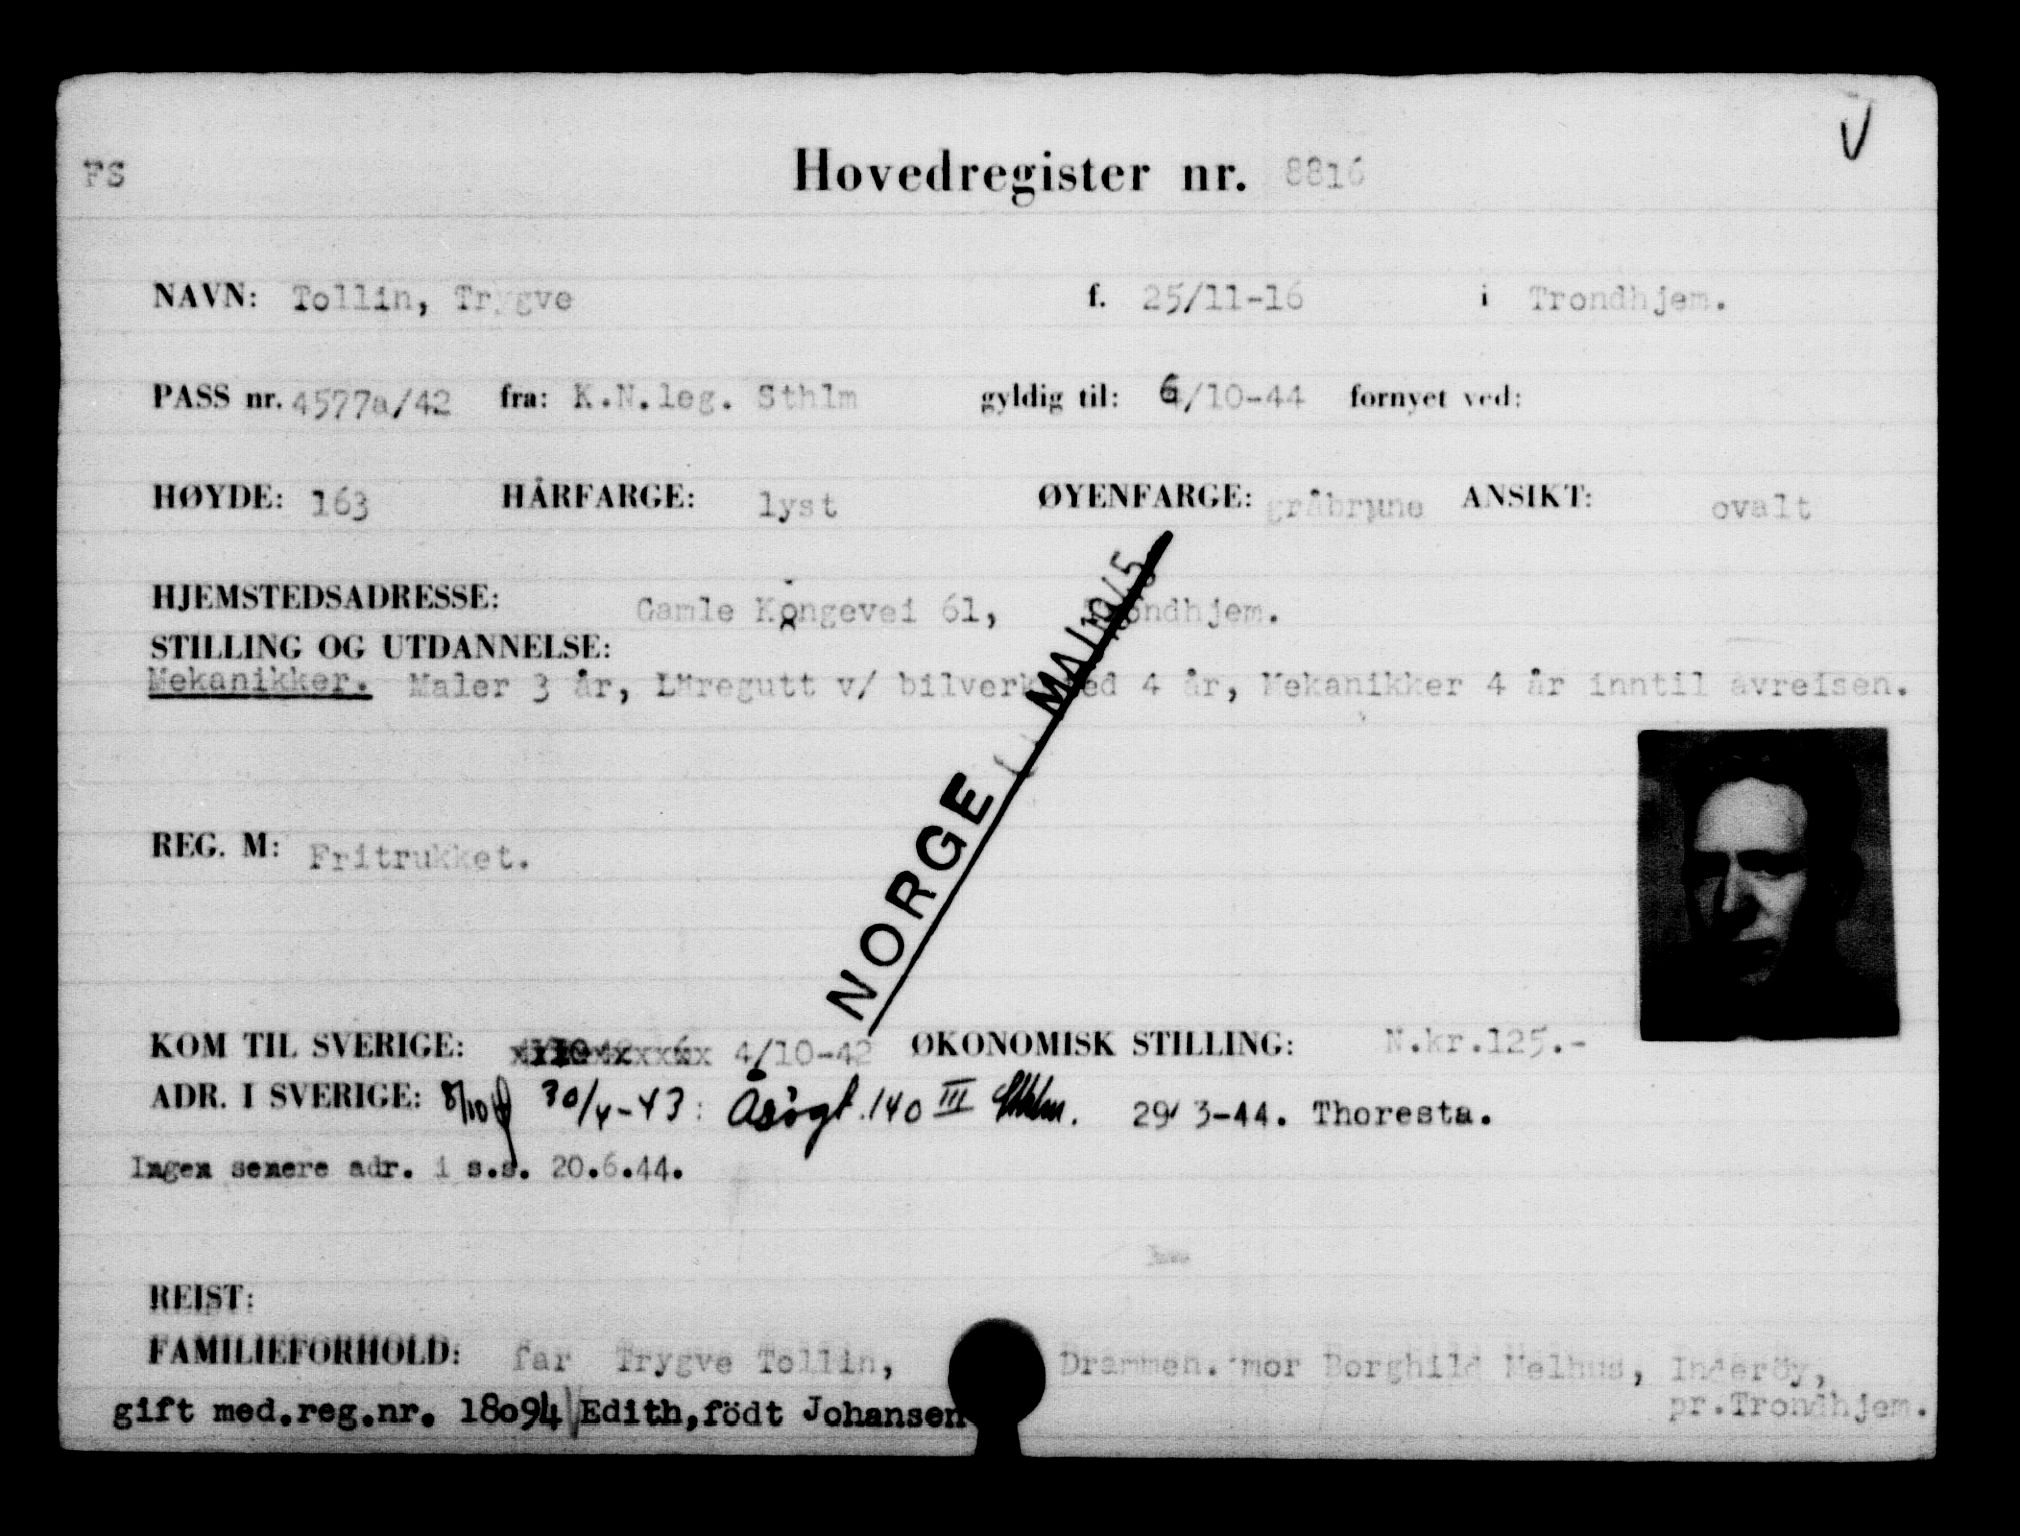 V
FS Hovedregister nr. 8816
NAVN: Tollin, Trygve f. 25/11-16 i Trondhjem.
PASS nr. 4577a/42 fra: K.N.leg. Sthlm gyldig til: 6/10-44 fornyet ved:
HØYDE: 163 HÅRFARGE: lyst ØYENFARGE: gråbrune ANSIKT: ovalt
HJEMSTEDSADRESSE: Gamle Kongevei 61, Trondhjem.
STILLING OG UTDANNELSE:
Mekanikker. Maler 3 år, Läregutt v/ bilverksted 4 år, Mekanikker 4 år inntil avreisen.
NORGE MAI 1945
REG. M: Fritrukket.
KOM TIL SVERIGE: 4/10-42 ØKONOMISK STILLING: N.kr.125.-
ADR. I SVERIGE: 8/10 30/4-43: Åsögt. 140 III Sthlm. 29/3-44. Thoresta.
Ingen senere adr. i s.s. 20.6.44.
REIST:
FAMILIEFORHOLD: far Trygve Tollin, Drammen. mor Borghild Melhus, Inderöy,
pr.Trondhjem.
gift med.reg.nr. 18094 Edith,födt Johansen